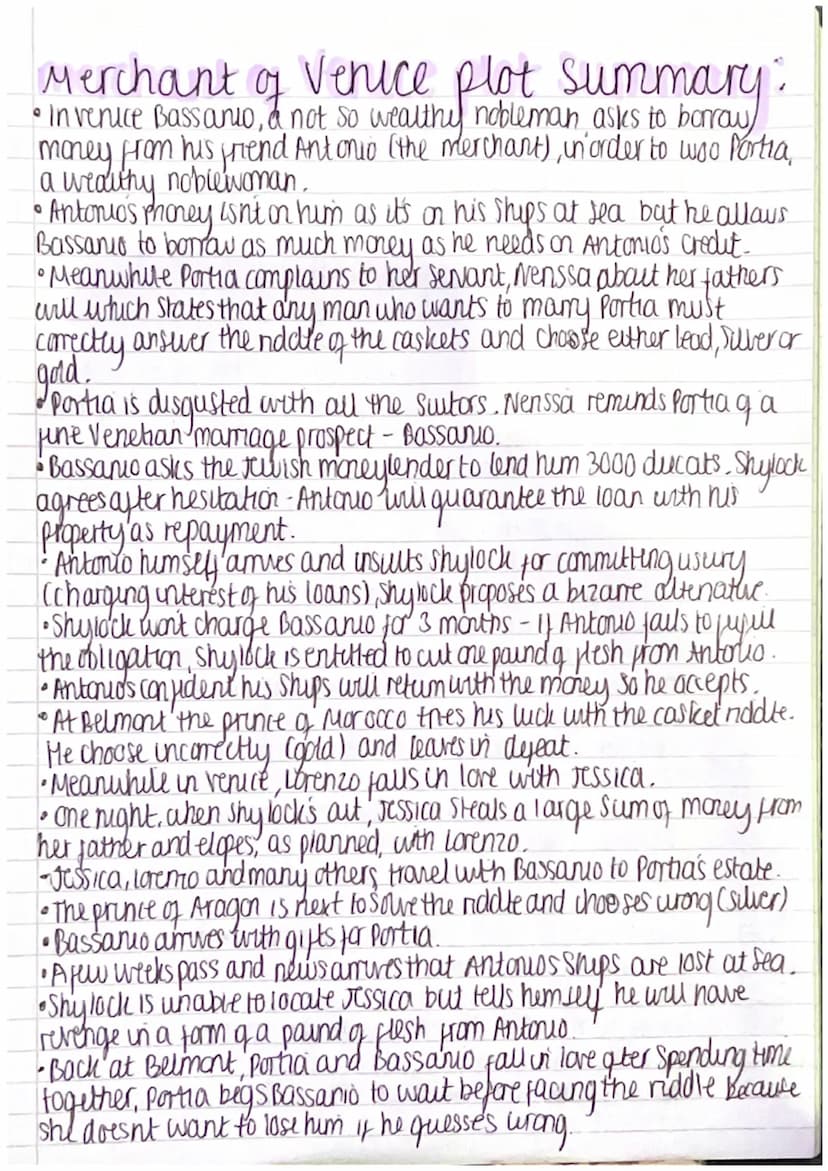 Merchant of Venice plot summary:
• In venice Bassanio, a not so wealthy nobleman asks to borrow
money from his friend Antonio (the merchant), in order to woo Portia,
a wealthy noblewoman.
• Antonio's money isnt on him as it's on his ships at sea but he allows
Bassanio to borrow as much money as he needs on Antonio's credit.
• Meanwhile Portia complains to her servant, Nerissa about her fathers
will which states that any man who wants to marry Portia must
correctly answer the riddle of the caskets and choose either lead, silver or
gold.
• Portia is disgusted with all the suitors. Nerissa reminds Portia of a
fine Venetian marriage prospect - Bassanio.
• Bassanio asks the Jewish moneylender to lend him 3000 ducats. Shylock
agrees after hesitation - Antonio will guarantee the loan with his
property as repayment.
• Antonio himself arrives and insults Shylock for committing usury
(charging interest of his loans), Shylock proposes a bizarre alternative.
• Shylock won't charge Bassanio for 3 months - if Antonio fails to fulfill
the obligation, Shylock is entitled to cut one pound of flesh from Antonio.
• Antonio's confident his ships will return with the money so he accepts.
• At Belmont the prince of Morocco tries his luck with the casket riddle.
He choose incorrectly (gold) and leaves in defeat.
• Meanwhile in venice, Lorenzo falls in love with Jessica.
• One night, when shylock's out, Jessica steals a large sum of money from
her father and elopes, as planned, with Lorenzo.
- Jessica, Lorenzo and many others travel with Bassanio to Portia's estate.
• The prince of Aragon is next to solve the riddle and chooses wrong (silver)
• Bassanio arrives with gifts for Portia.
• A few weeks pass and news arrives that Antonios ships are lost at sea.
• Shylock is unable to locate Jessica but tells hemself he will have
revenge in a form of a pound of flesh from Antonio.
• Back at Belmont, Portia and Bassanio fall in love after spending time
together, Portia begs Bassanio to wait before facing the riddle because
she doesnt want to lose him if he guesses wrong.